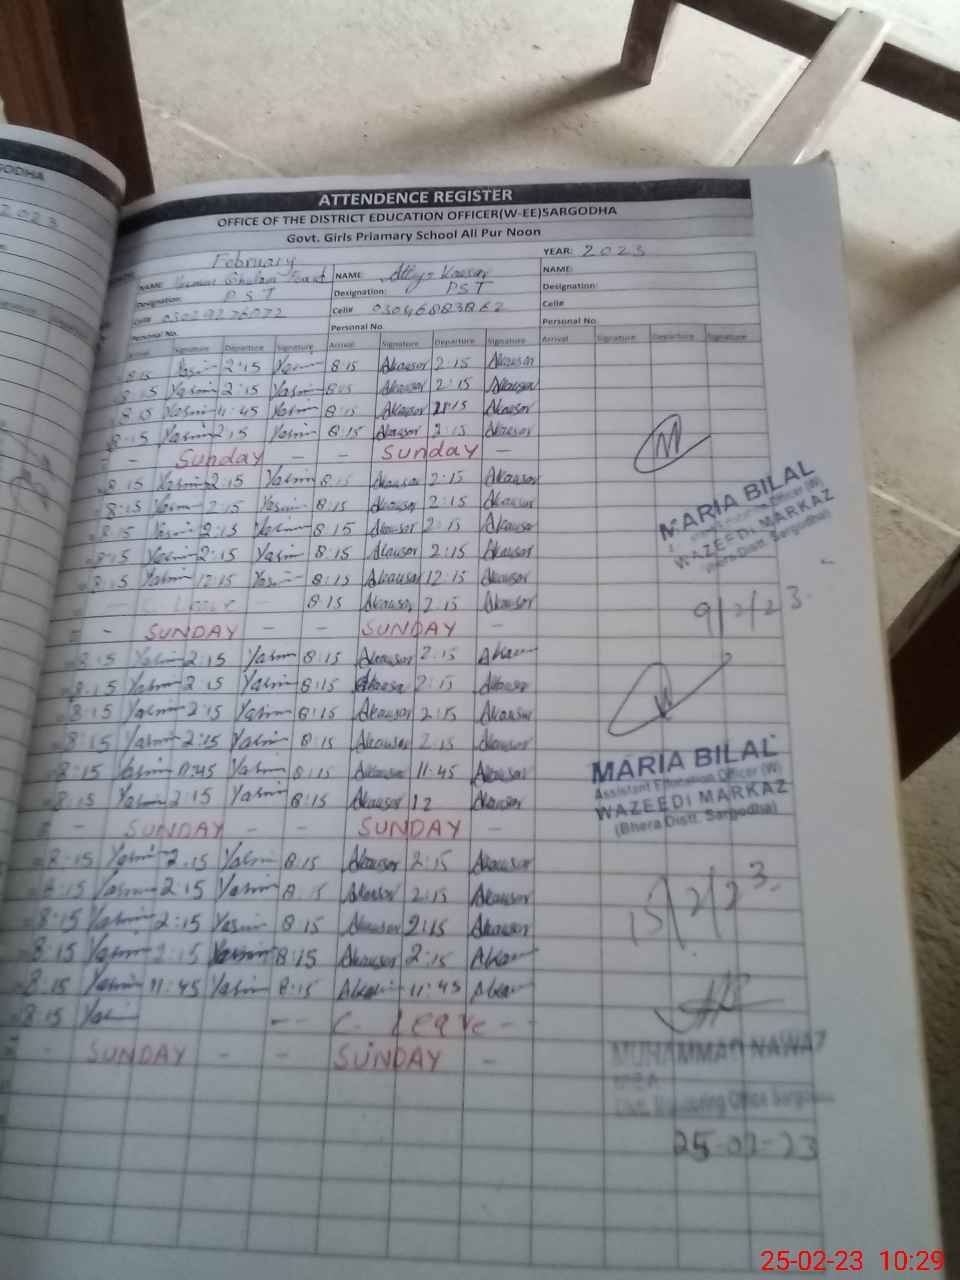 GODHA
2023
ATTENDENCE REGISTER
OFFICE OF THE DISTRICT EDUCATION OFFICER(W-EE)SARGODHA
Govt. Girls Priamary School Ali Pur Noon
February YEAR: 2023
NAME: Ghulam NAME: Kausar NAME:
Designation: P.S.T Designation: P.S.T Designation:
Cell# Cell# Cell#
Personal No. Personal No. Personal No.
Arrival Signature Departure Signature Arrival Signature Departure Signature Arrival Signature Departure Signature
8:15 Yasmin 2:15 Yasmin 8:15 Akausar 2:15 Akausar
8:15 Yasmin 2:15 Yasmin 8:15 Akausar 2:15 Akausar
8:15 Yasmin 11:45 Yasmin 8:15 Akausar Akausar
8:15 Yasmin 2:15 Yasmin 8:15 Akausar 2:15 Akausar
- - Sunday - - Sunday -
8:15 Yasmin 2:15 Yasmin 8:15 Akausar 2:15 Akausar
8:15 Yasmin 2:15 Yasmin 8:15 Akausar 2:15 Akausar
8:15 Yasmin 2:15 Yasmin 8:15 Akausar 2:15 Akausar
8:15 Yasmin 2:15 Yasmin 8:15 Akausar 2:15 Akausar
8:15 Yasmin 12:15 Yasmin 8:15 Akausar 12:15 Akausar
- C. Leave - 8:15 Akausar 2:15 Akausar
- - SUNDAY - - SUNDAY -
8:15 Yasmin 2:15 Yasmin 8:15 Akausar 2:15 Akausar
8:15 Yasmin 2:15 Yasmin 8:15 Akausar 2:15 Akausar
8:15 Yasmin 2:15 Yasmin 8:15 Akausar 2:15 Akausar
8:15 Yasmin 2:15 Yasmin 8:15 Akausar 2:15 Akausar
8:15 Yasmin 11:45 Yasmin 8:15 Akausar 11:45 Akausar
8:15 Yasmin 2:15 Yasmin 8:15 Akausar 12 Akausar
- - SUNDAY - - SUNDAY -
8:15 Yasmin 2:15 Yasmin 8:15 Akausar 2:15 Akausar
8:15 Yasmin 2:15 Yasmin 8:15 Akausar 2:15 Akausar
8:15 Yasmin 2:15 Yasmin 8:15 Akausar 2:15 Akausar
8:15 Yasmin 2:15 Yasmin 8:15 Akausar 2:15 Akausar
8:15 Yasmin 11:45 Yasmin 8:15 Akausar 11:45 Akausar
8:15 Yasmin -- C. Leave --
- - SUNDAY - - SUNDAY -
MARIA BILAL
Officer (W)
WAZEEDI MARKAZ
(Bhera Distt. Sargodha)
9/2/23.
MARIA BILAL
Assistant Education Officer (W)
WAZEEDI MARKAZ
(Bhera Distt. Sargodha)
15/2/23.
MUHAMMAD NAWAZ
MEA
Distt. Monitoring Office Sargodha
25-02-23
25-02-23 10:29